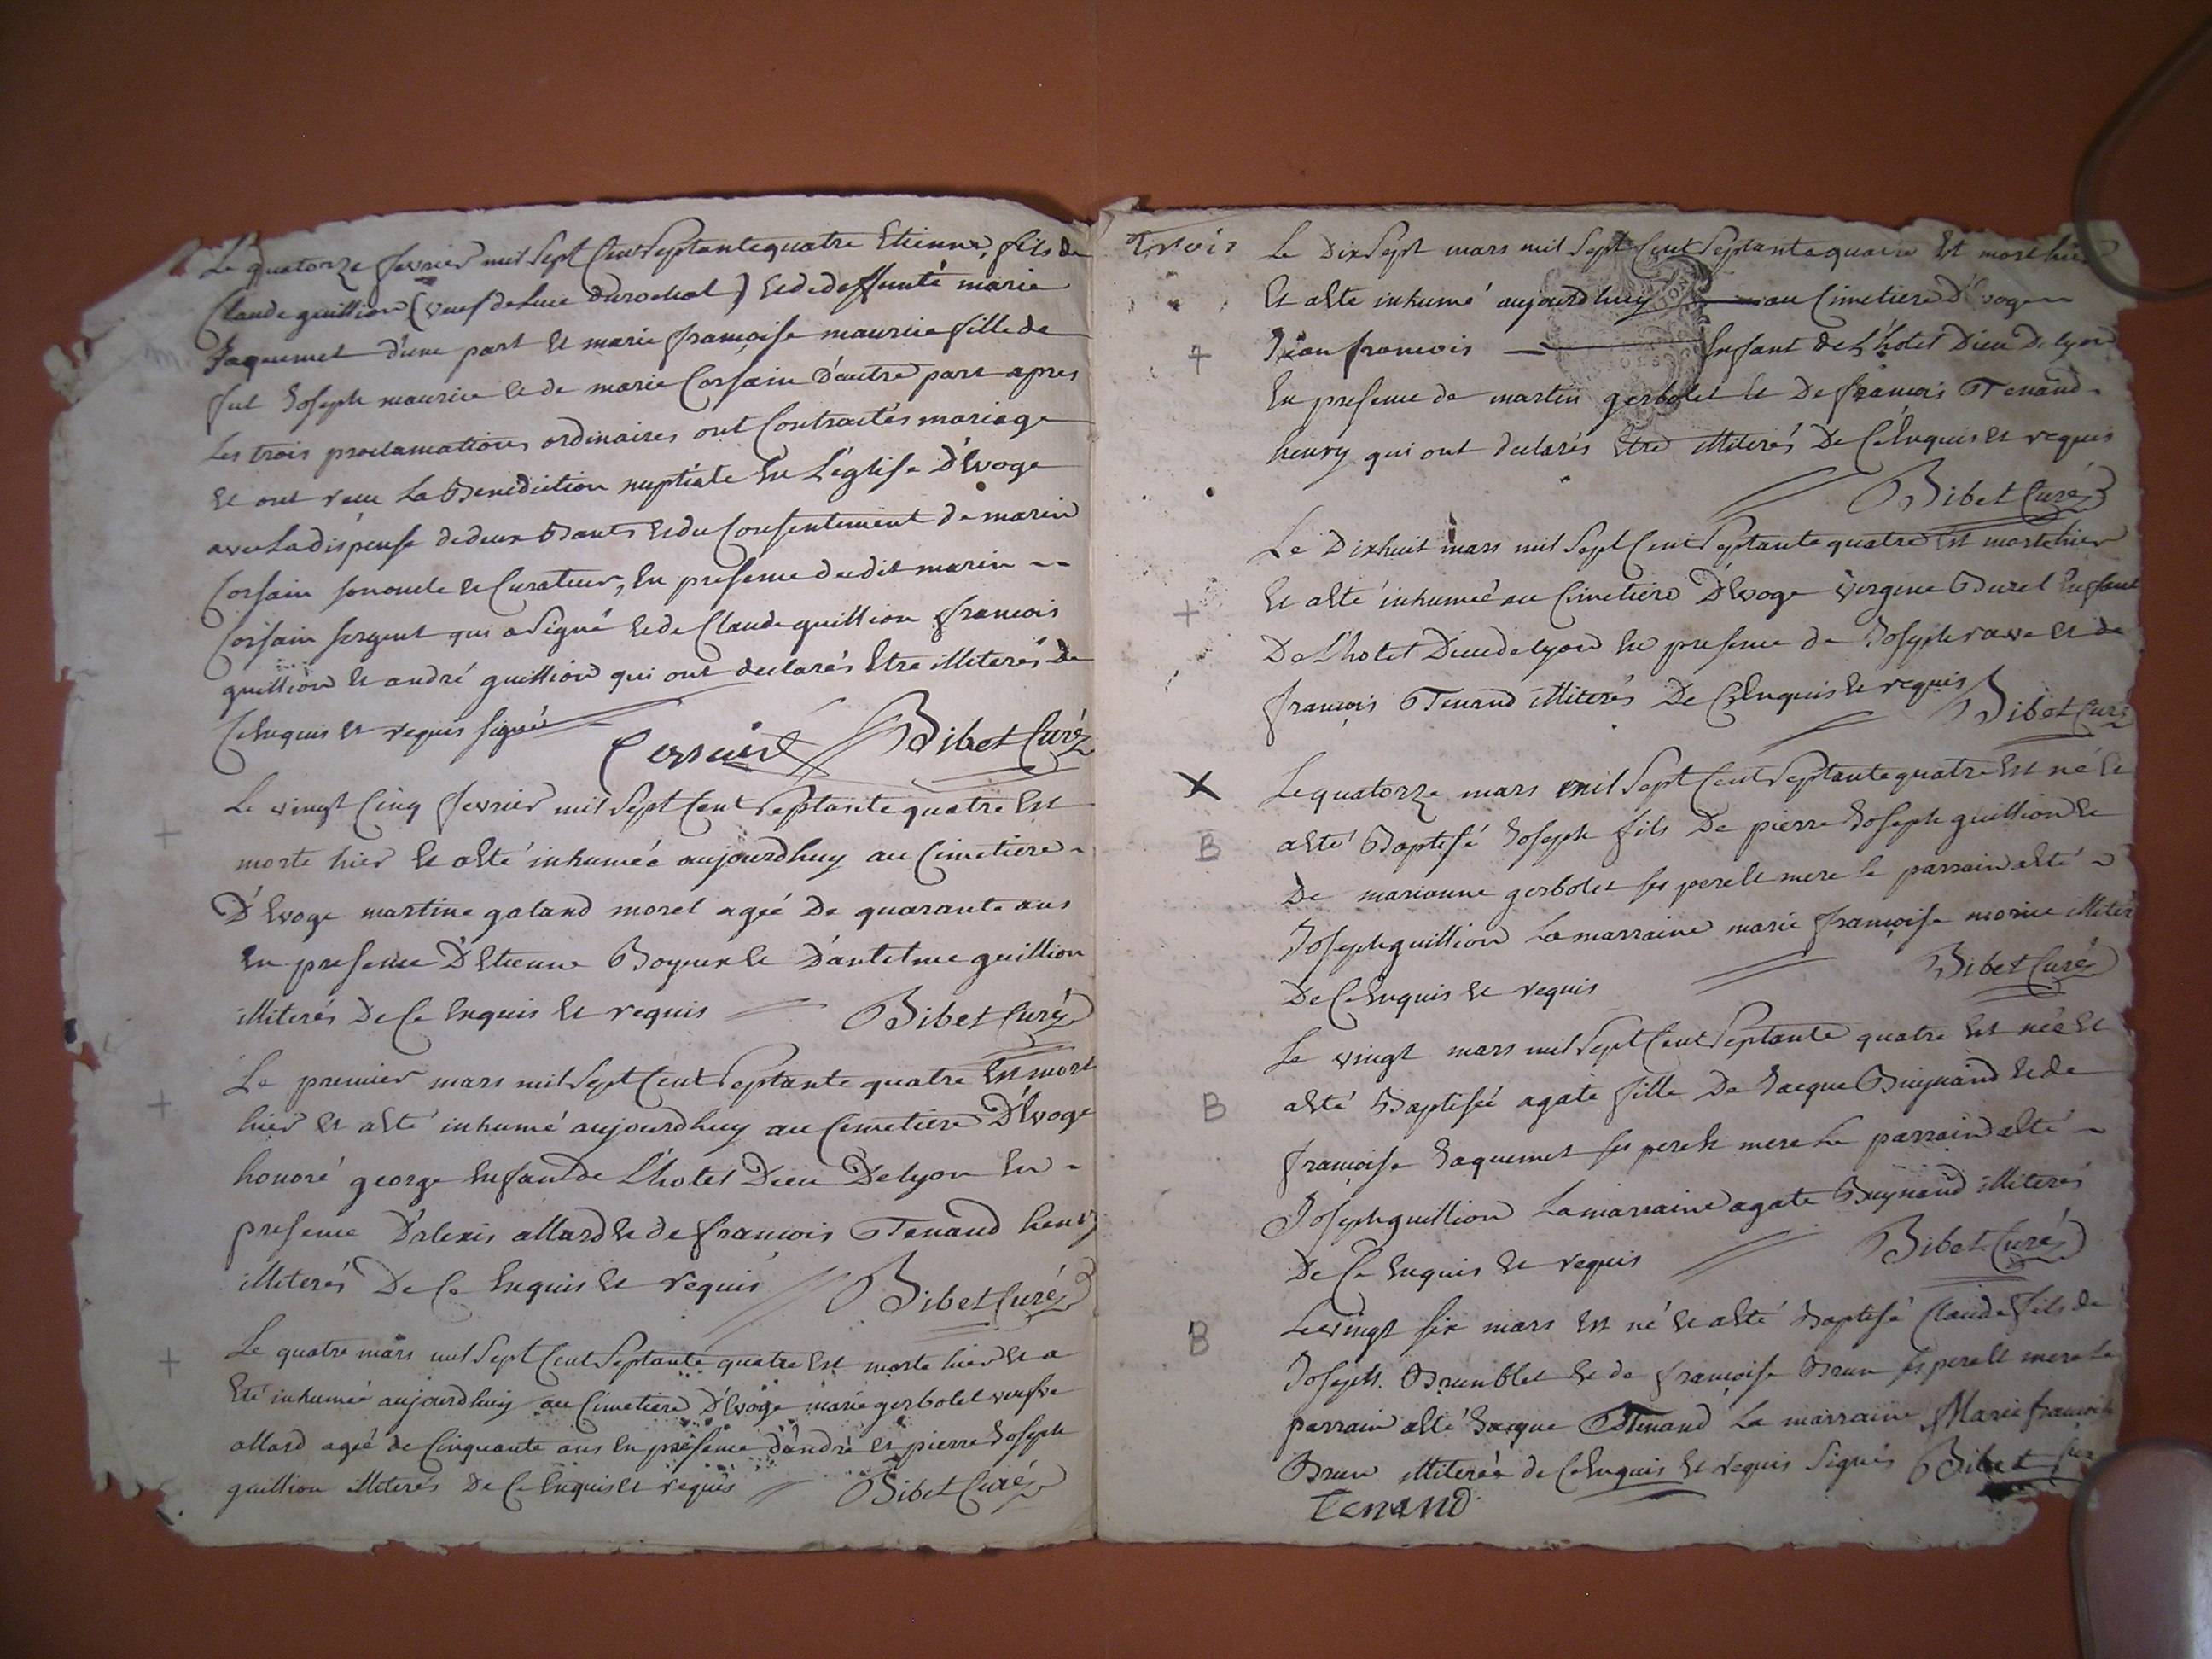 Le quatorze fevrier mil Sept Cent Septante quatre Etienne, fils de
Claude guillion (veuf de Lucie Durochat) et de deffunte marie
Jaquemet d'une part et marie françoise maurice fille de
fut Joseph maurice et de marie Corsain d'autre part apres
Les trois proclamations ordinaires ont Contractés mariage
et ont reçu La Benediction nuptiale En L'église D'Evoge
avec La dispense de deux Bants et du Consentement de marin
Corsain son oncle et Curateur, En presence dudit marin
Corsain sergent qui a signé et de Claude guillion françois
guillion et andré guillion qui ont declarés Etre illiterés de
Ce Enquis et requis signé
Corsaint Bibet Curé
Le vingt Cinq fevrier mil Sept Cent Septante quatre Est
morte hier et a Eté inhumée aujourdhuy au Cimetiere
D'Evoge martine galand morel agée De quarante ans
En presence D'Etienne Boyeux et D'antelme guillion
illiterés De Ce Enquis et requis Bibet Curé
Le premier mars mil Sept Cent Septante quatre Est mort
hier et a Eté inhumé aujourdhuy au Cimetiere D'Evoge
honoré george Enfant de L'hotel Dieu De Lyon En
presence D'alexis allard et de françois Tenand henry
illiterés De Ce Enquis et requis Bibet Curé
Le quatre mars mil Sept Cent Septante quatre Est morte hier et a
Eté inhumée aujourdhuy au Cimetiere D'Evoge marie gerbolet veufve
allard agée de Cinquante ans En presence D'andré et pierre Joseph
guillion illiterés De Ce Enquis et requis Bibet Curé
Trois
Le Dix Sept mars mil Sept Cent Septante quatre Est mort hier
Et a Eté inhumé aujourdhuy au Cimetiere D'Evoge
Jean francois Enfant de L'hotel Dieu De Lyon
En presence de martin gerbolet et De francois Tenand
henry qui ont declarés Etre illiterés De Ce Enquis et requis
Bibet Curé
Le Dixhuit mars mil Sept Cent Septante quatre Est morte hier
Et a Eté inhumée au Cimetiere D'Evoge virgine Burel Enfant
De L'hotel Dieu de Lyon En presence de Joseph rave et de
françois Tenand illiterés De Ce Enquis et requis Bibet Curé
X
Le quatorze mars mil Sept Cent Septante quatre Est né et
B
a Eté Baptisé Joseph fils De pierre Joseph guillion et
De marianne gerbolet ses pere et mere le parrain a Eté
Joseph guillion La marraine marie françoise morice illiter
De Ce Enquis et requis Bibet Curé
Le vingt mars mil Sept Cent Septante quatre Est née Et
B
a Eté Baptisée agate fille De Jacque Buynand et de
françoise Jaquemet ses pere et mere Le parrain a Eté
Joseph guillion La marraine agate Buynand illiterés
De Ce Enquis et requis Bibet Curé
B
Le vingt six mars Est né et a Eté Baptisé Claude fils de
Joseph Brunblet et de françoise Brun ses pere et mere Le
parrain a Eté Jacque Tenand La marraine Marie francoise
Brun illiterée de Ce Enquis et requis Signés Bibet Cur
Tenand